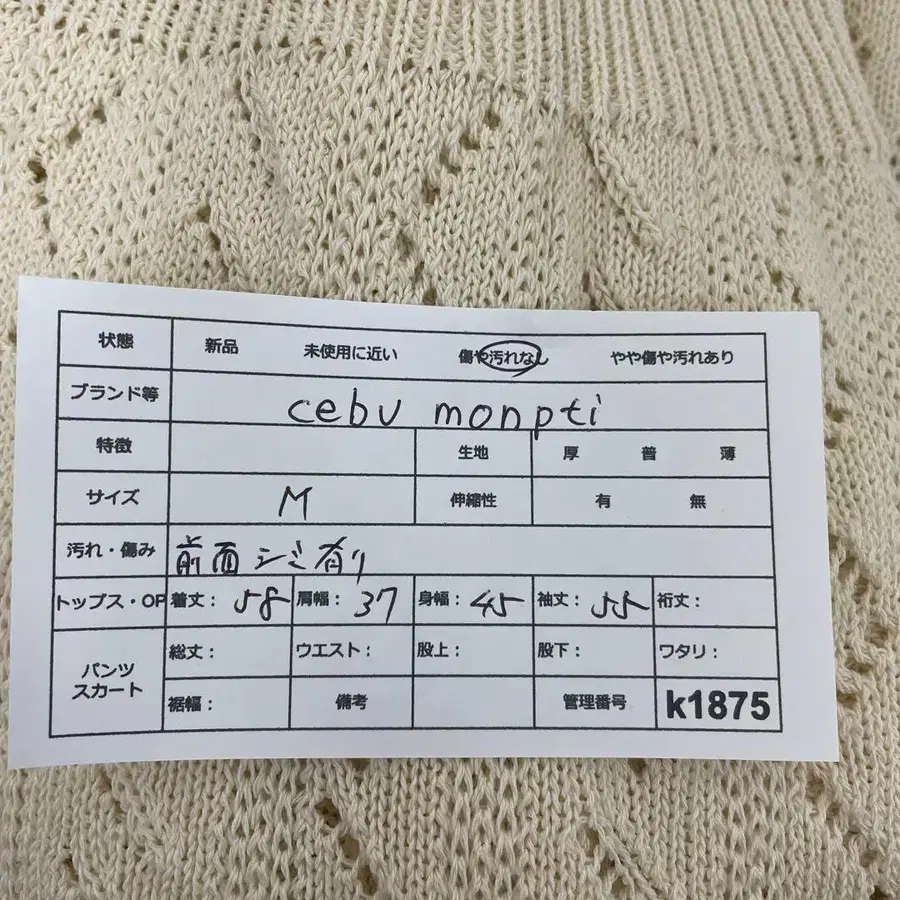 状態 新品 未使用に近い 傷や汚れなし やや傷や汚れあり
ブランド等 cebu monpti
特徴 生地 厚 普 薄
サイズ M 伸縮性 有 無
汚れ・傷み 前面シミ有り
トップス・OP 着丈: 58 肩幅: 37 身幅: 45 袖丈: 55 裄丈:
パンツ スカート 総丈: ウエスト: 股上: 股下: ワタリ:
裾幅: 備考 管理番号 k1875